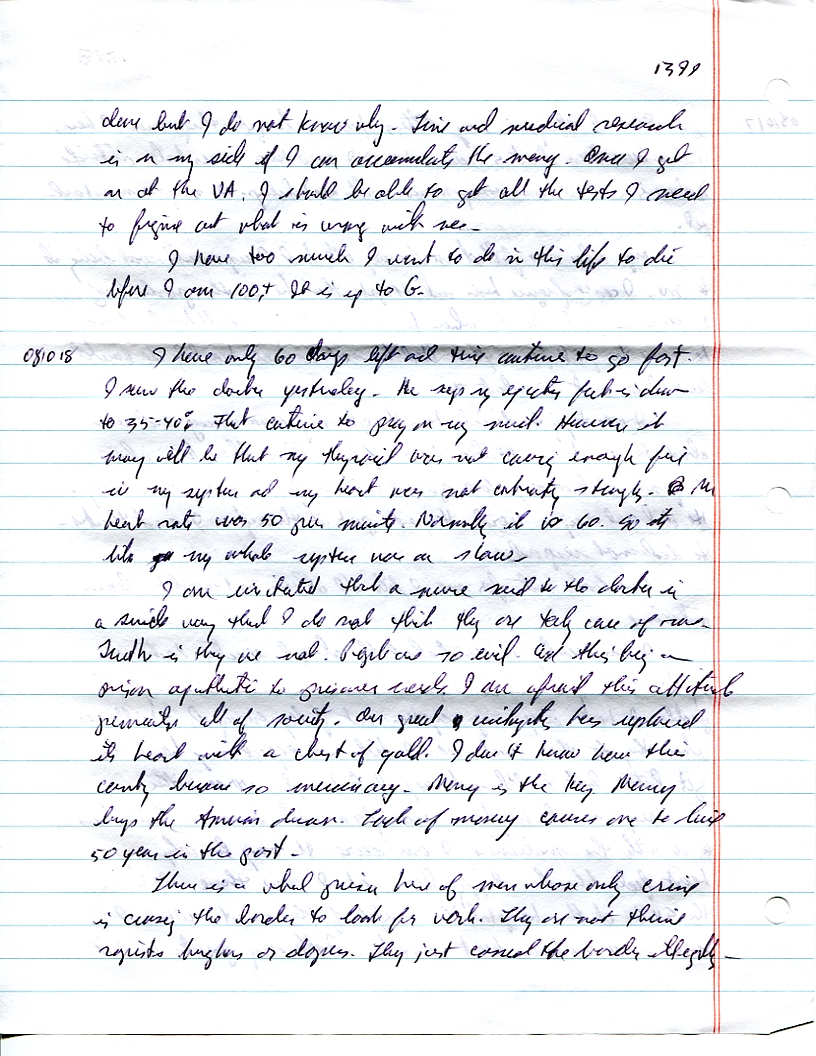 1399
done but I do not know why. Time and medical research
is on my side if I can accumulate the money. Once I get
on at the VA. I should be able to get all the tests I need
to figure out what is wrong with me.
I have too much I want to do in this life to die
before I am 100+. It is up to G.
081018 I have only 60 days left and time continue to go fast.
I saw the doctor yesterday. He says my ejection is down
to 35-40% That continue to prey on my mind. However it
may well be that my thyroid was not enough fuel
in my system and my heart was not strongly. My
heart rate was 50 per minute. Normally it is 60. So its
like my whole system was on slow.
I am irritated that a nurse said to the doctor in
a snide way that I do not think they are taking care of me.
Truth is they are not. People are so evil. And this being a
prison apathetic to prisoner needs. I am afraid this attitude
permeates all of society. Our great has replaced
its heart with a chest of gold. I don't know how this
country became so mercenary. Money is the key. Money
buys the American dream. Lack of money causes one to live
50 year in the past.
There is a whole prison here of men whose only crime
is crossing the border to look for work. They are not
rapists burglars or dopers. They just crossed the border illegally.